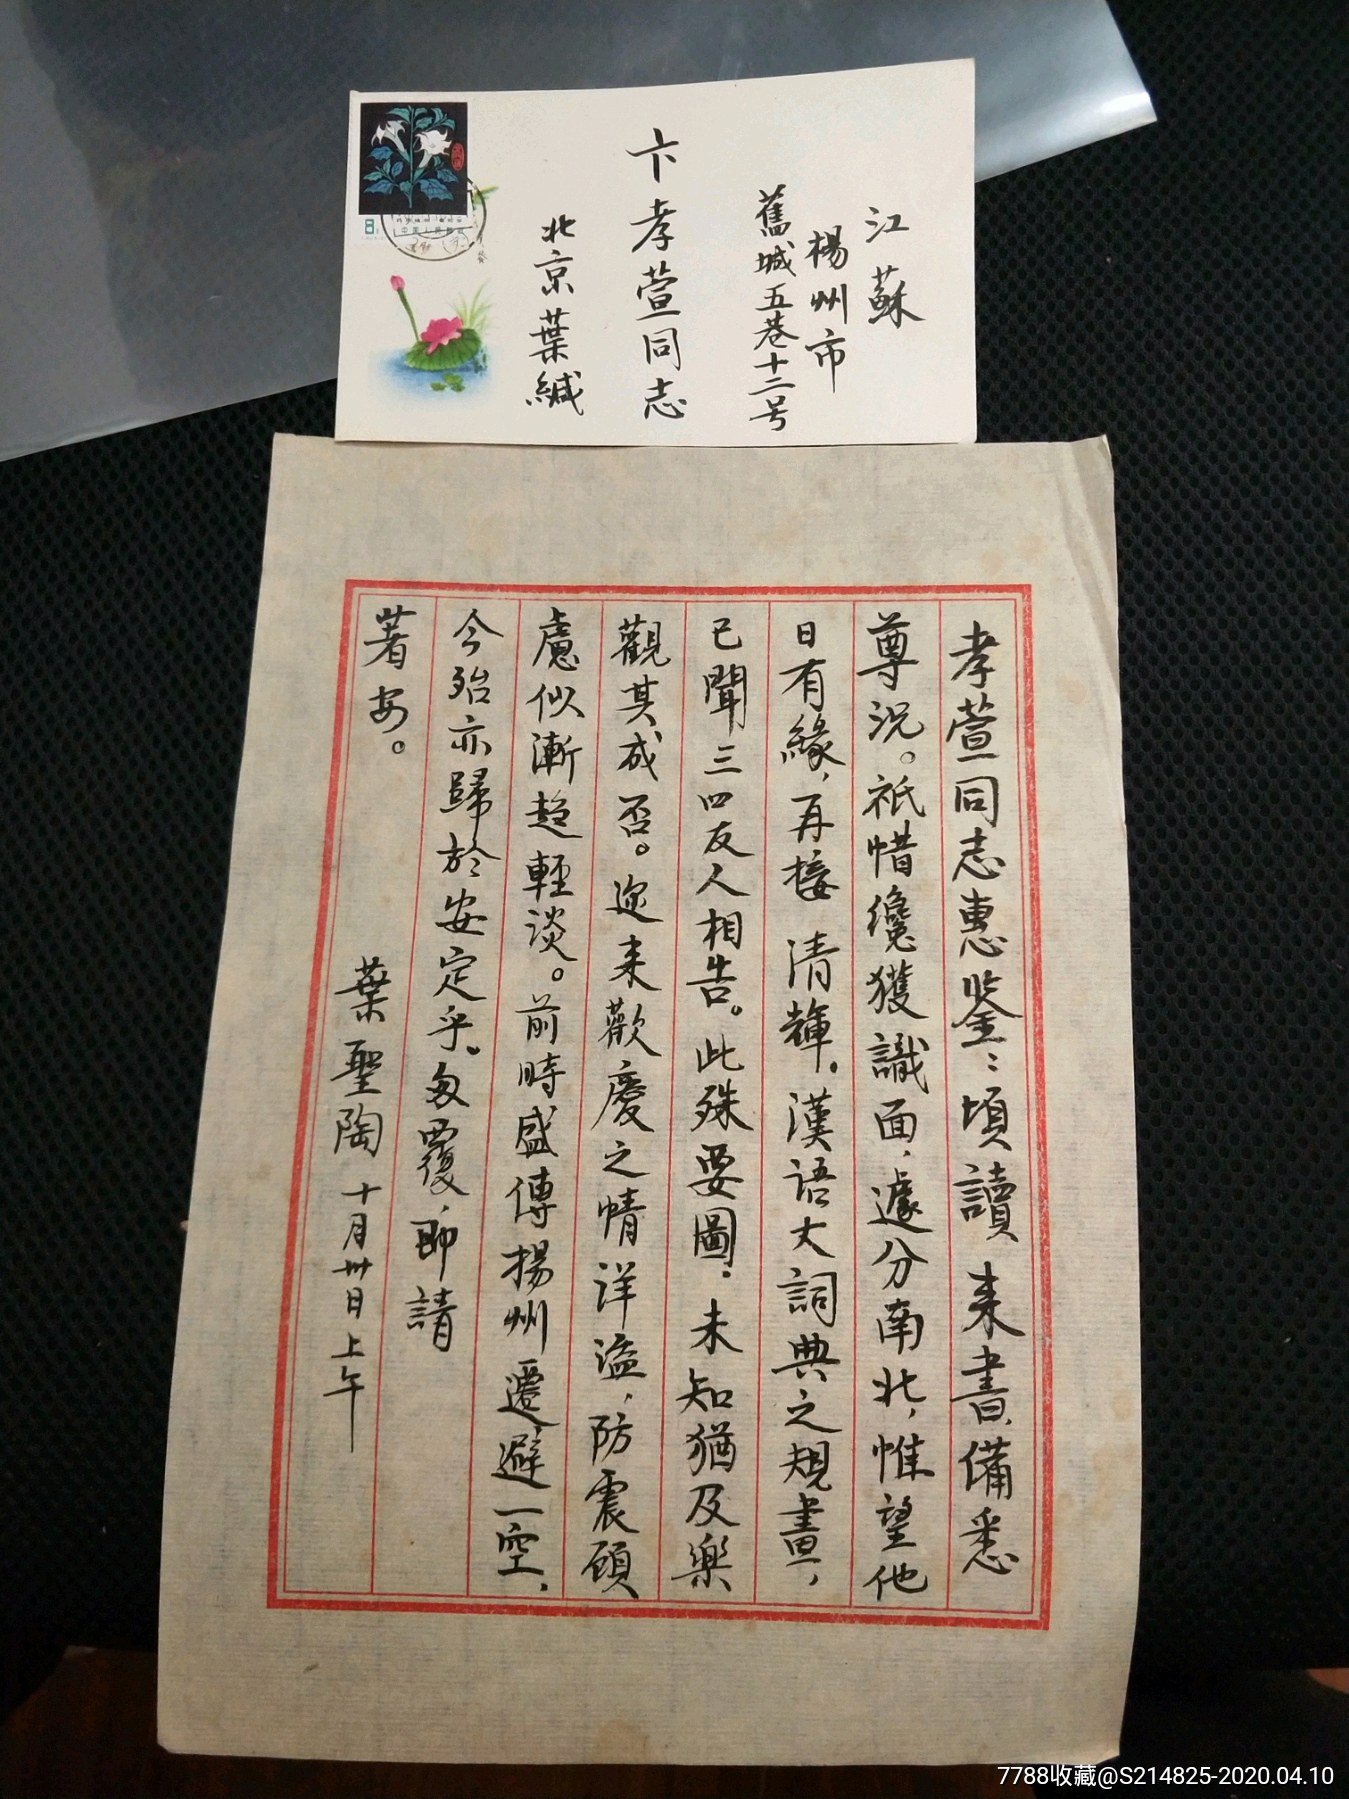 江蘇
楊州市
舊城五巷十二号
卞孝萱同志
北京葉緘
8
孝萱同志惠鉴：頃讀 来書，備悉
尊况。祇惜纔獲識面，遽分南北，惟望他
日有緣，再接 清輝。漢语大詞典之規畫，
已聞三四友人相告。此殊要圖，未知猶及樂
觀其成否。迩来歡慶之情洋溢，防震顾
慮似漸趋輕淡。前時盛傳揚州遷避一空，
今殆亦歸於安定乎。匆覆，即請
著安。
葉聖陶 十月卅日上午
7788收藏@S214825-2020.04.10